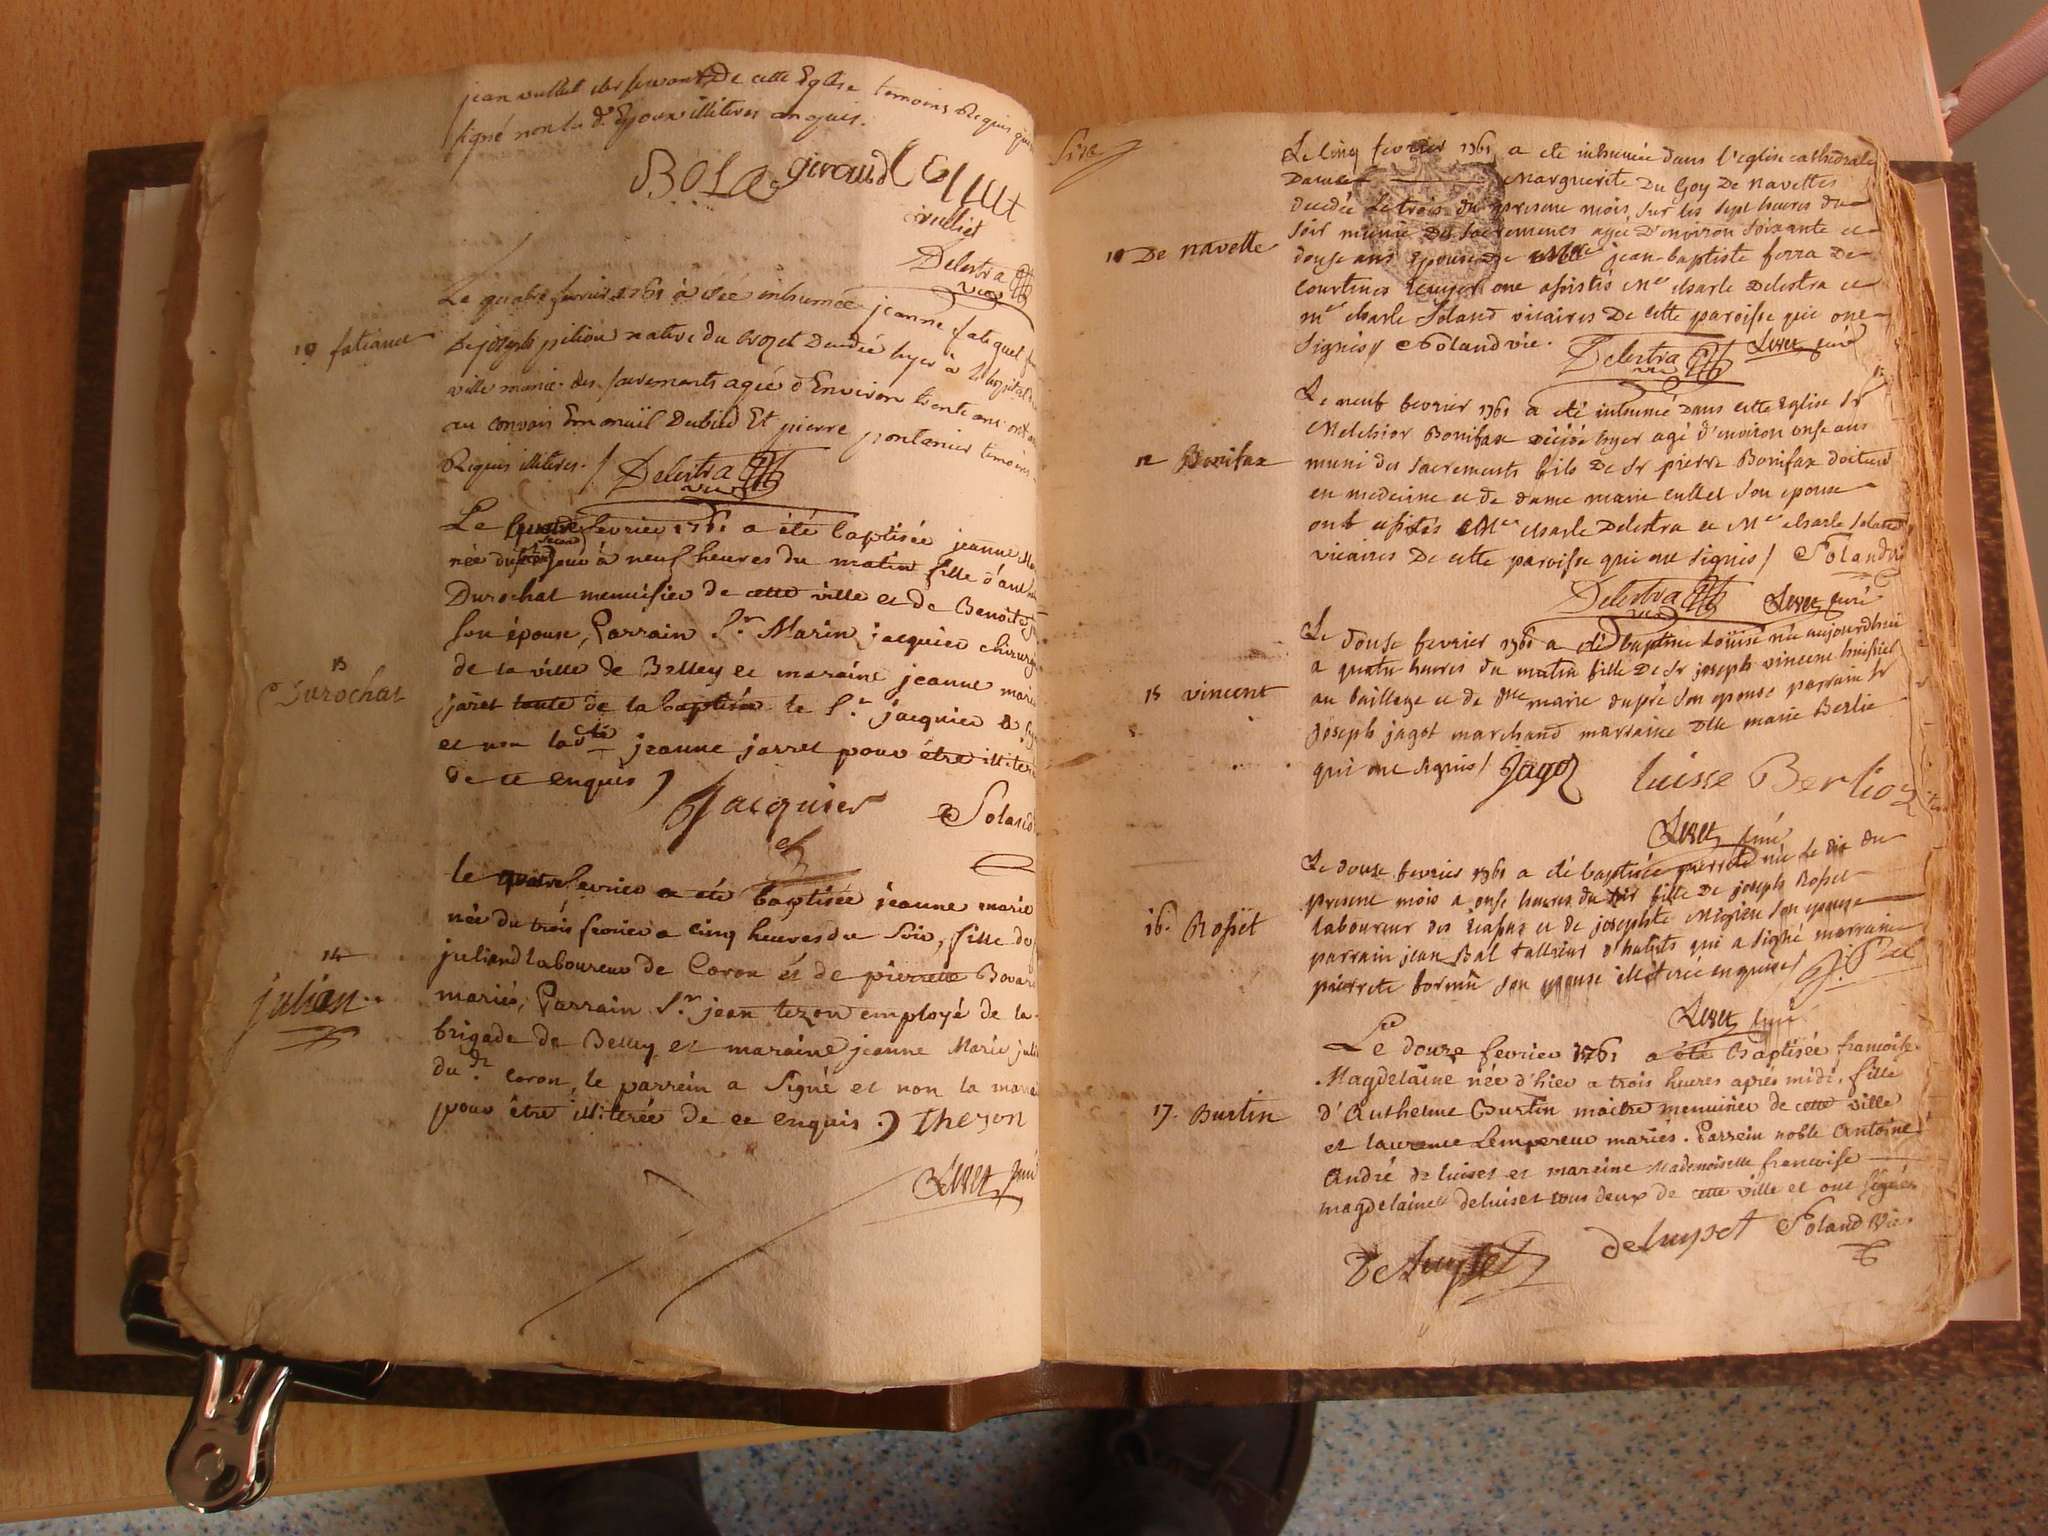 jean vulliet de cette Eglise temoins Requis
signé non les d. Epoux illiteres enquis.
BOLA giraud
vulliet
Delestra vic
10 fatianet
Le quatre fevrier 1761 a été inhumée jeanne
de joseph native du Decedée hyer a l'hopital
ville munie des sacremants agée d'Environ trente ans ont
au convoi Emanuïl Et pierre pontanier temoins
Requis illiteres. / Delestra vic
13
Durochat
Le fevrier 1761 a été baptisée jeanne
née du second jour à neuf heures du matin fille d'
Durochat menuisier de cette ville et de Benoite
son épouse, Parrain S.r Marin jacquier chirurgi
de la ville de Belley et maraine jeanne marie
jaret tante de la baptisée le S.r jacquier a
et non la d.te jeanne jarret pour être illiter
de ce enquis)
Jacquier Soland
14
julian
le quatre fevrier a été baptisée jeanne marie
née du trois fevrier a cinq heures du Soir, fille de
juliand laboureur de Coron et de pierrette Bovar
mariés, Parrain S.r jean tezon employé de la
brigade de Belley et maraine jeanne Marie juli
du d.t Coron, le parrein a Signé et non la mare
pour être illiterée de ce enquis.) theron
curé
Le cinq fevrier 1761 a ete inhumée dans l'eglise cathedrale
Dame Marguerite Du Goy De navettes
11 De navette
decedée le trois du present mois sur les sept heures du
soir munie des sacrements agée d'environ soixante et
douse ans Epouse de jean-baptiste ferra De
Courtines Ecuyer ont assistés M.re charle Delestra et
m.re charle Soland vicaires De cette paroisse qui ont
Signés // Soland vic. Delestra vic curé
12 Bonifax
Le neuf fevrier 1761 a été inhumé Dans cette Eglise Sr
Melchior Bonifax décédé hyer agé d'environ onse ans
muni des sacrements fils De Sr pierre Bonifax docteur
en medecine et de dame marie cullet son epouse
ont assistés M.re charle Delestra et M.re charle Soland
vicaires De cette paroisse qui ont signés / Soland vic
Delestra vic curé
15 vincent
Le douse fevrier 1761 a été baptisée Loüise née aujourdhui
a quatre heures du matin fille De Sr joseph vincent huissier
au bailliage et de Dlle marie dupré son epouse parrain Sr
joseph jagot marchand marraine Dlle marie Berlie
qui ont signés / Jagot luisse Berlioz
curé
16. Rosset
Le douse fevrier 1761 a été baptisée pierrete née le dix du
present mois a onse heures du soir fille De joseph Rosset
laboureur des et de josephte son epouse
parrain jean Bal tallieur d'habits qui a signé marraine
pierrete son epouse illeterée enquise /
curé
17. Burtin
Le douze fevrier 1761 a été Baptisée francoise
Magdelaine née d'hier a trois heures après midi, fille
d'Anthelme Burtin maitre menuisier de cette ville
et laurence Lempereur mariés. Parrein noble Antoine
André de luiset et mareine Mademoiselle francoise
magdelaine deluiset tous deux de cette ville et ont signés
deluyset Soland vic